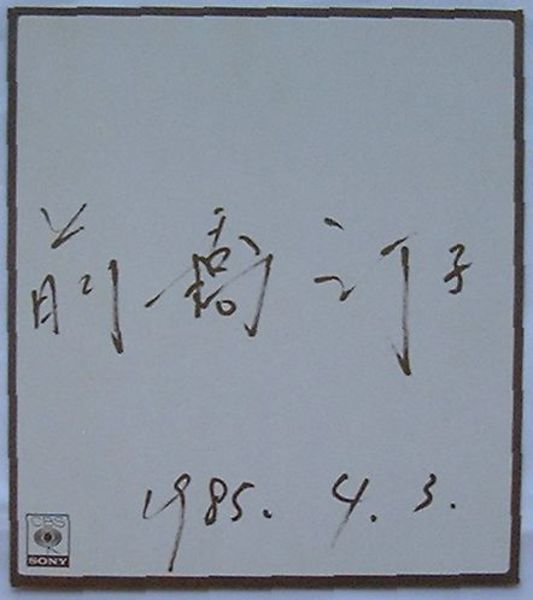 前橋汀子
1985. 4. 3.
CBS
SONY